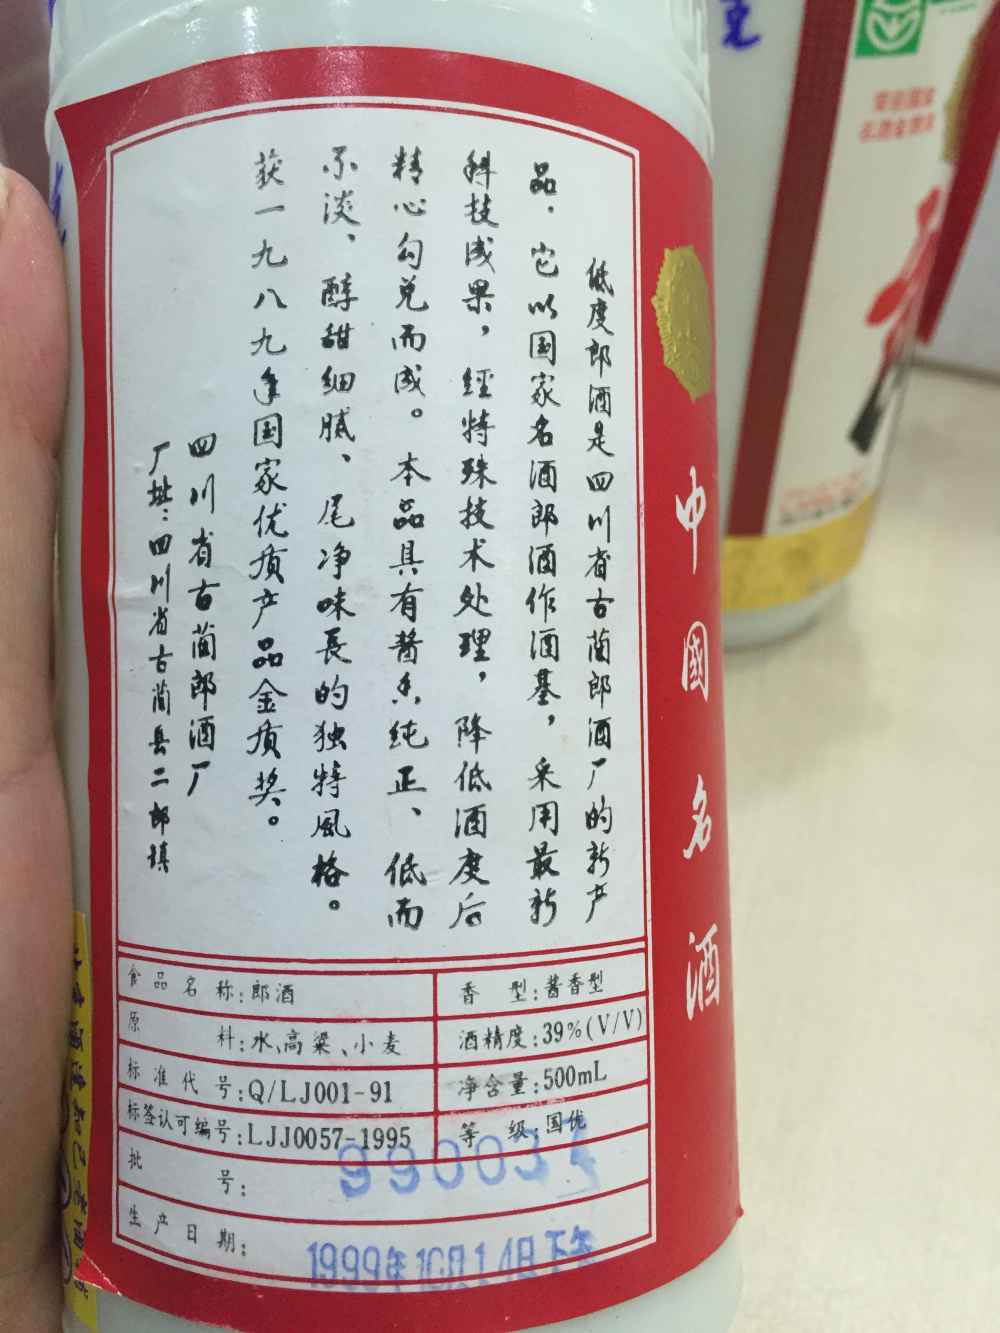 低度郎酒是四川省古蔺郎酒厂的新产
品．它以国家名酒郎酒作酒基，采用最新
科技成果，經特殊技术处理，降低酒度后
精心勾兑而成。本品具有酱香纯正、低而
不淡、醇甜细腻、尾净味長的独特風格。
获一九八九年国家优质产品金质奖。
四川省古蔺郎酒厂
厂址：四川省古蔺县二郎镇
中國名酒
食品名称：郎酒
香型：酱香型
原料：水、高粱、小麦
酒精度：39%(V/V)
标准代号：Q/LJ001-91
净含量：500mL
标签认可编号：LJJ0057-1995
等级：国优
批号：
生产日期：1999年10月14日下午